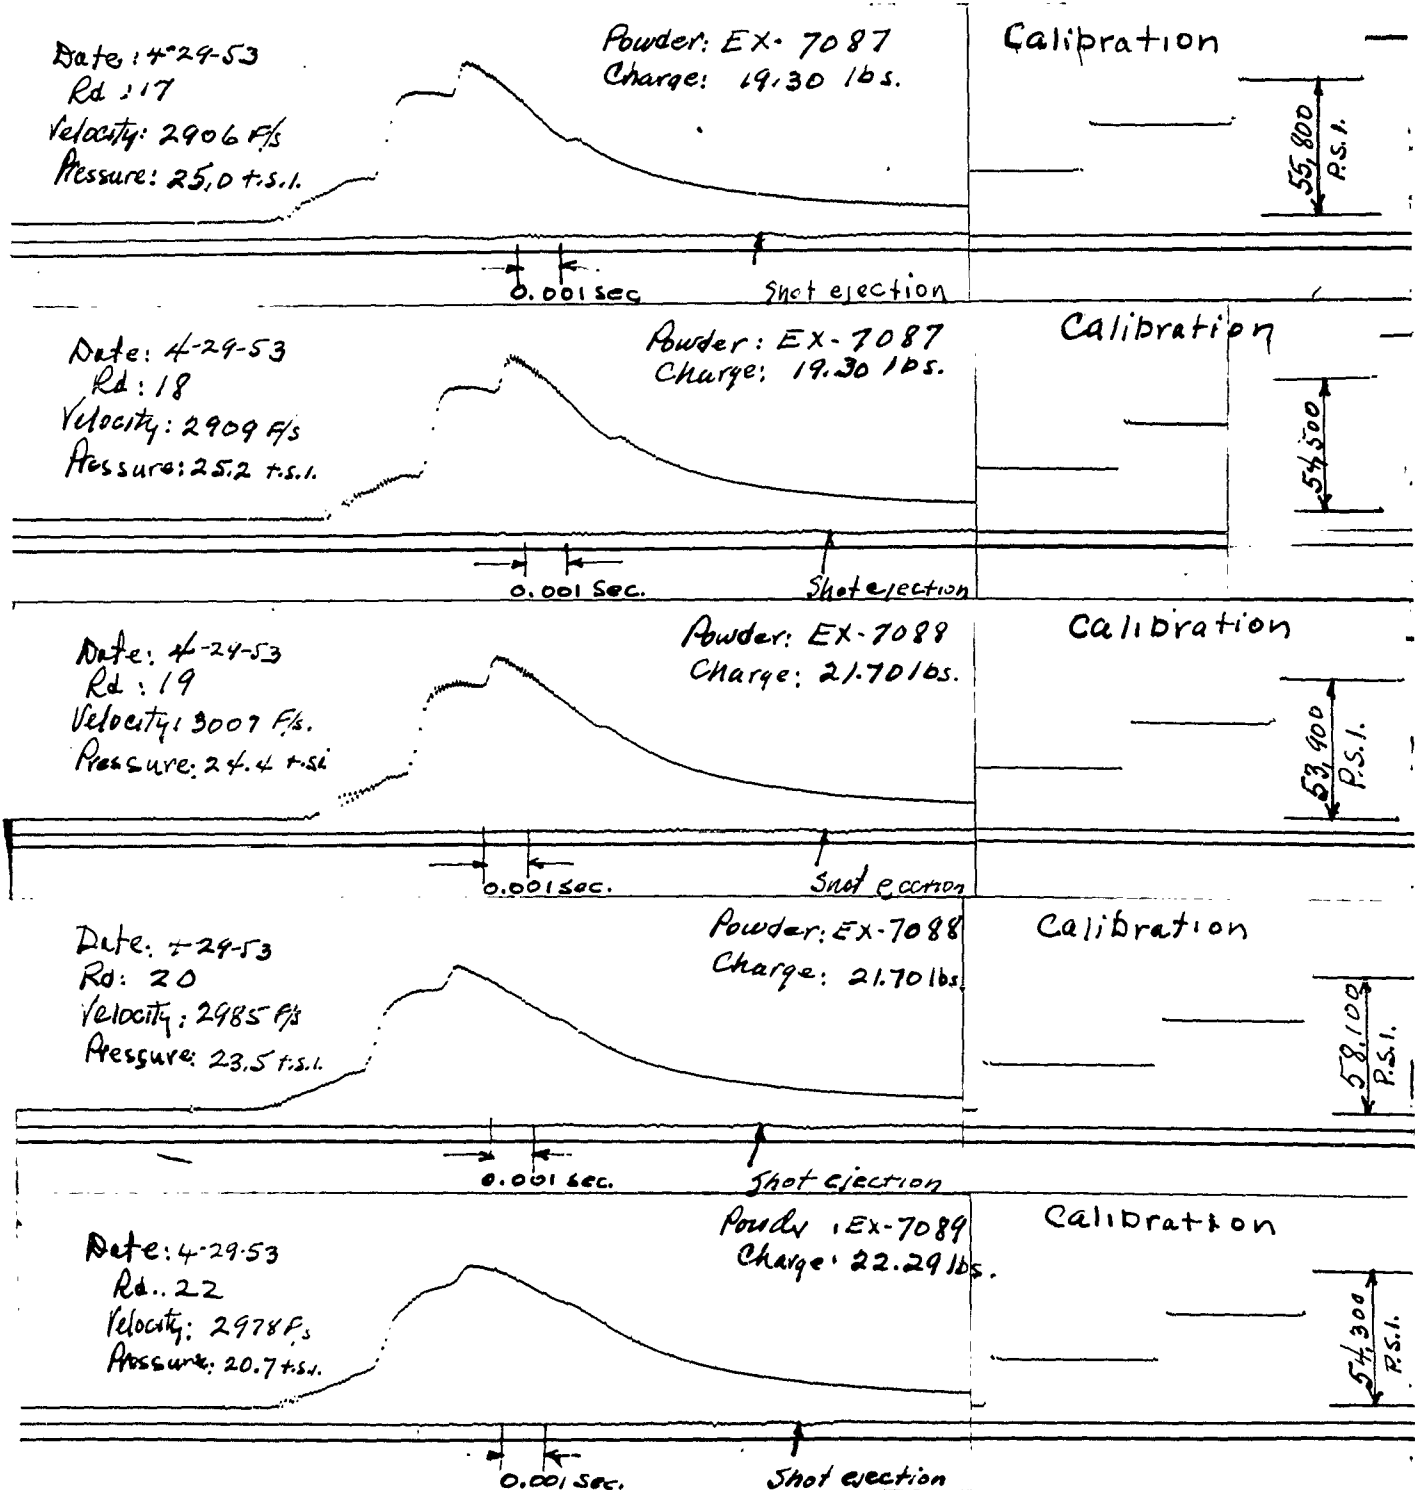 Date: 4-29-53
Rd: 17
Velocity: 2906 F/s
Pressure: 25.0 t.s.i.
Powder: EX-7087
Charge: 19.30 lbs.
Calibration
55,800
P.S.I.
0.001 sec
Shot ejection
Date: 4-29-53
Rd: 18
Velocity: 2909 F/s
Pressure: 25.2 t.s.i.
Powder: EX-7087
Charge: 19.30 lbs.
Calibration
54,500
0.001 Sec.
Shot ejection
Date: 4-29-53
Rd: 19
Velocity: 3007 F/s.
Pressure: 24.4 t.si
Powder: EX-7088
Charge: 21.70 lbs.
Calibration
53,900
P.S.I.
0.001 Sec.
Shot
Date: 4-29-53
Rd: 20
Velocity: 2985 F/s
Pressure: 23.5 t.s.i.
Powder: EX-7088
Charge: 21.70 lbs
Calibration
58,100
P.S.I.
0.001 sec.
Shot ejection
Date: 4-29-53
Rd.. 22
Velocity: 2978 F/s
Pressure: 20.7 t.s.i.
Powder: EX-7089
Charge: 22.29 lbs.
Calibration
54,300
P.S.I.
0.001 Sec.
Shot ejection